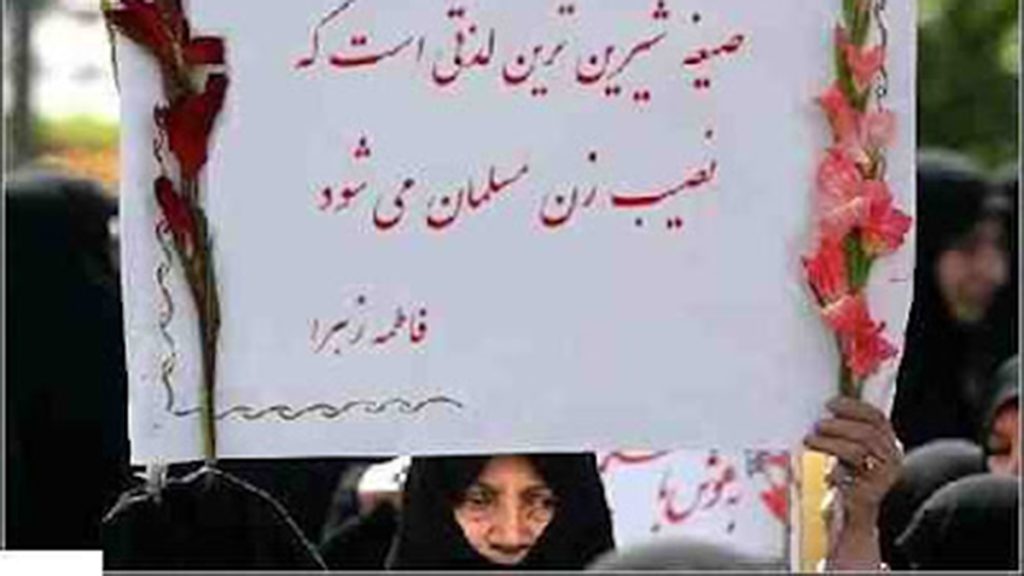 صیغه شیرین ترین لذتی است که
نصیب زن مسلمان می شود
فاطمه زهرا